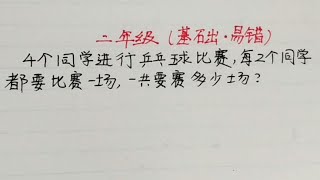 二年级（基础·易错）
4个同学进行乒乓球比赛,每2个同学
都要比赛一场,一共要赛多少场?